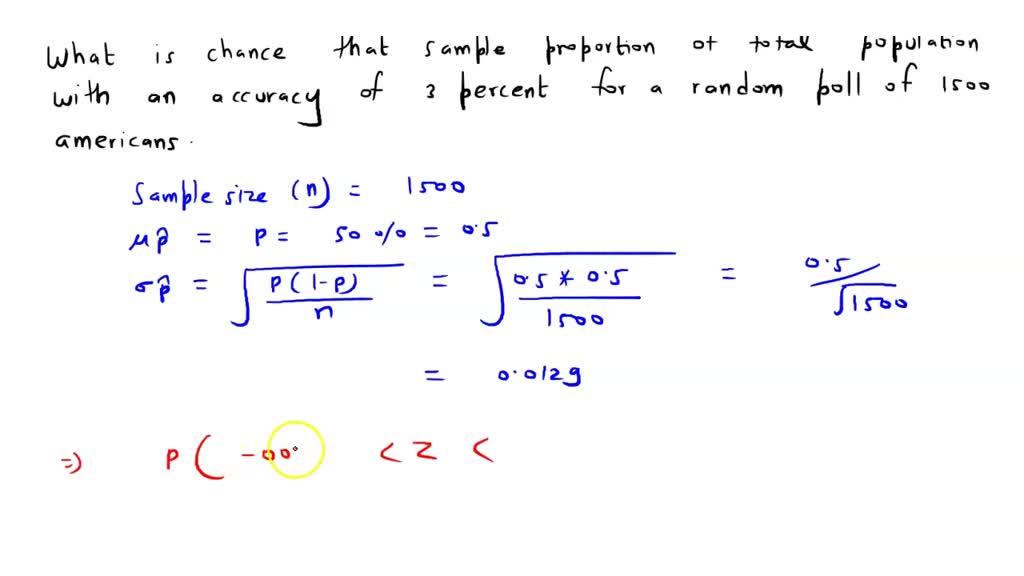 What is chance that sample proportion of total population
with an accuracy of 3 percent for a random poll of 1500
americans.
Sample size (n) = 1500
μp̂ = P = 50 % = 0.5
σp̂ = √(P(1-P)/n) = √(0.5 * 0.5/1500) = 0.5/√1500
= 0.0129
⇒ P( -00. < Z <